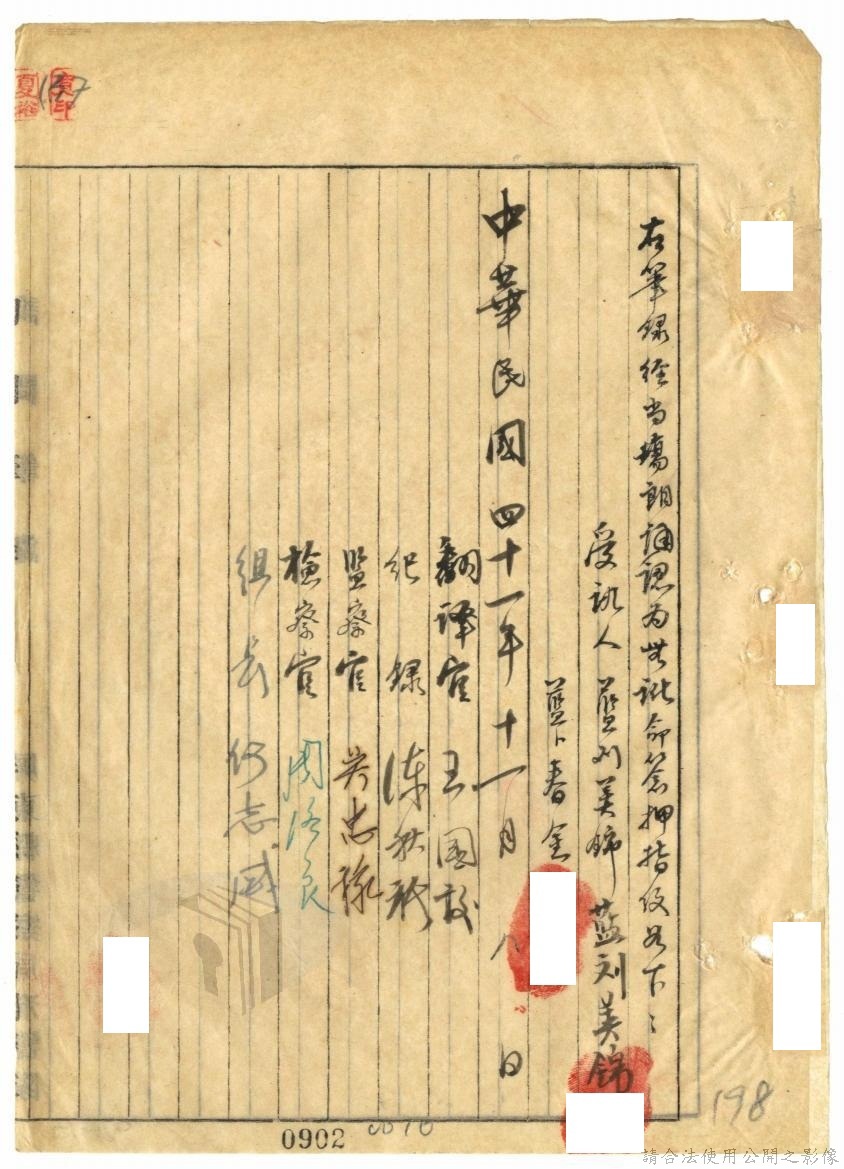 右筆録経当塲朗誦認为無訛命簽押指紋如下：
受訊人 藍刘美锦 藍刘美錦
藍卜春金
中華民國四十一年十一月八日
翻譯官 王國
紀録 陳秋
監察官 吳忠
檢察官 周浴良
組長 何志威
197
198
0902
請合法使用公開之影像